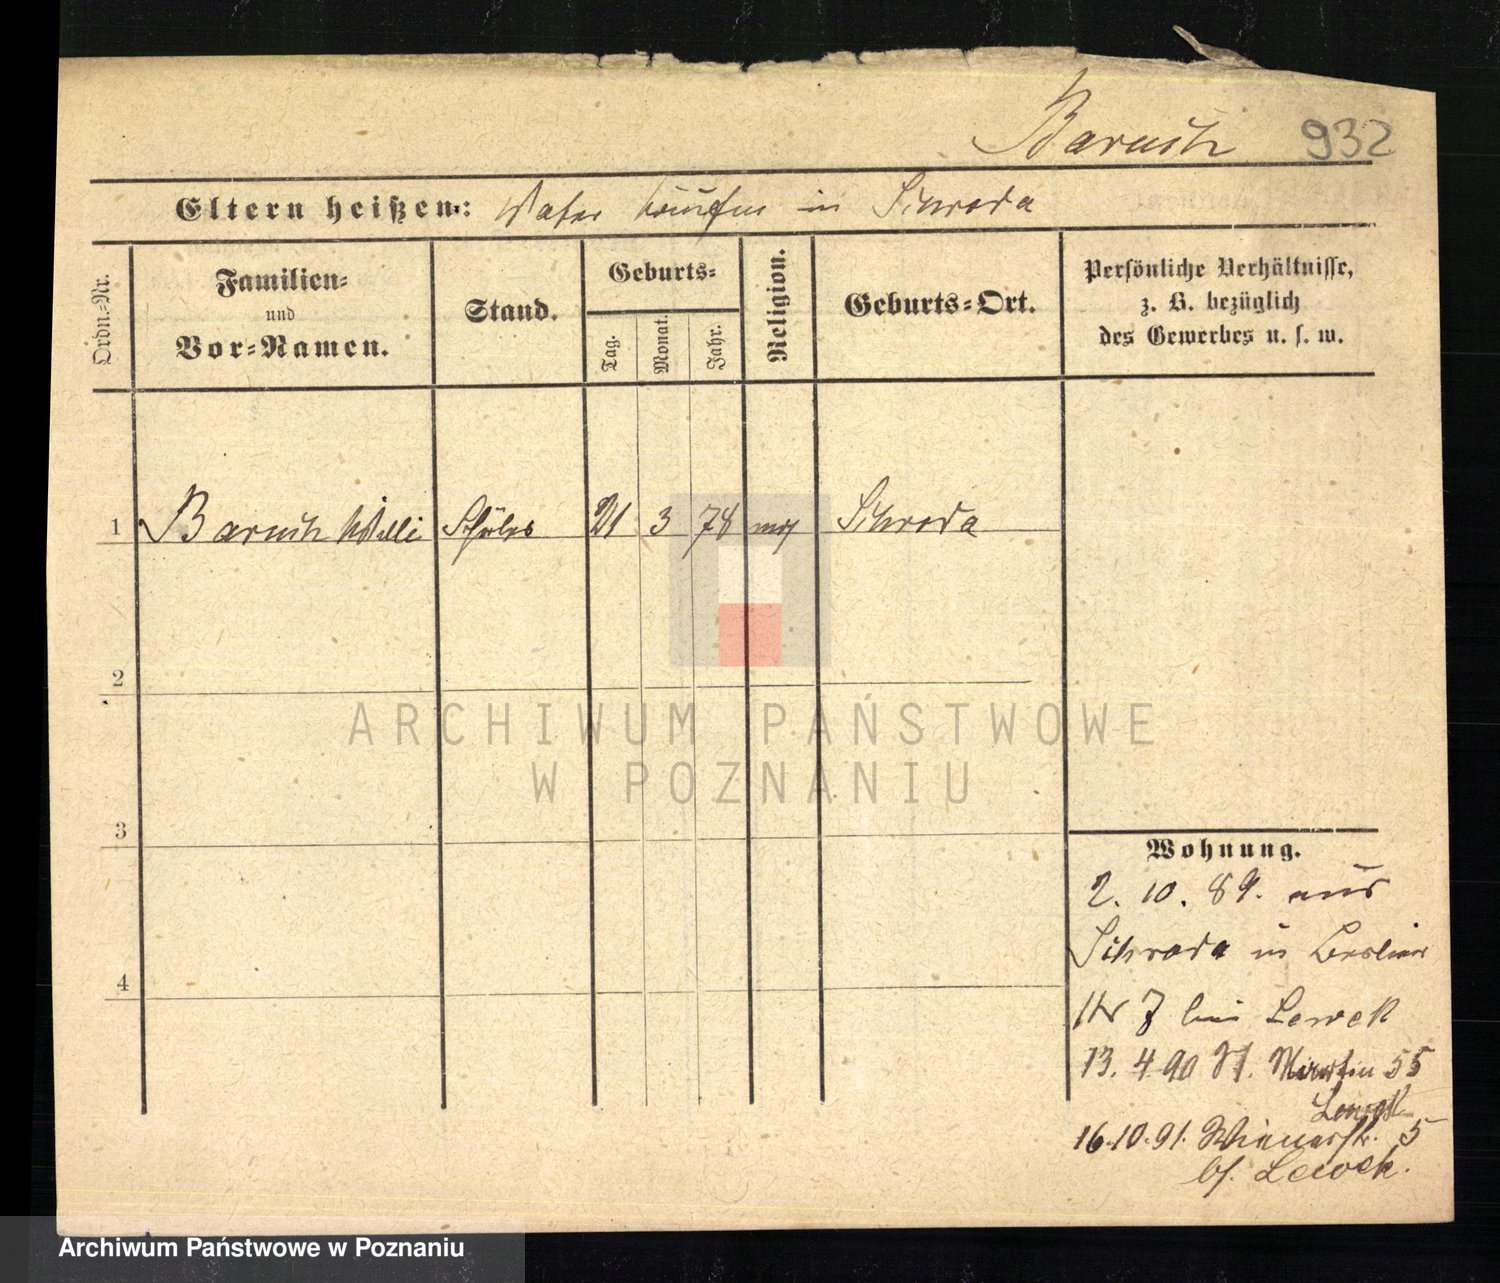 Baruch 932
Eltern heißen: Vater Kaufm in Schroda
Ordn.-Nr.
Familien-
und
Vor-Namen.
Stand.
Geburts-
Tag.
Monat.
Jahr.
Religion.
Geburts-Ort.
Persönliche Verhältnisse,
z. B. bezüglich
des Gewerbes u. s. w.
1 Baruch Willi Schüler 21 3 78 mos Schroda
2
3
4
Wohnung.
2. 10. 89. aus
Schroda in Berliner
7 bei Lewek
13. 4 90 St. Martin 55
Lewek
16.10.91. Wienerstr. 5
b/. Lewek.
ARCHIWUM PAŃSTWOWE
W POZNANIU
Archiwum Państwowe w Poznaniu